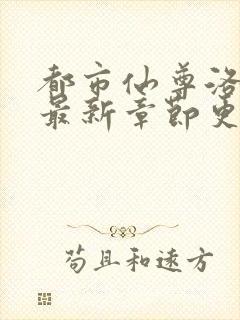 都市仙尊洛
最新章节更
苟且和远方